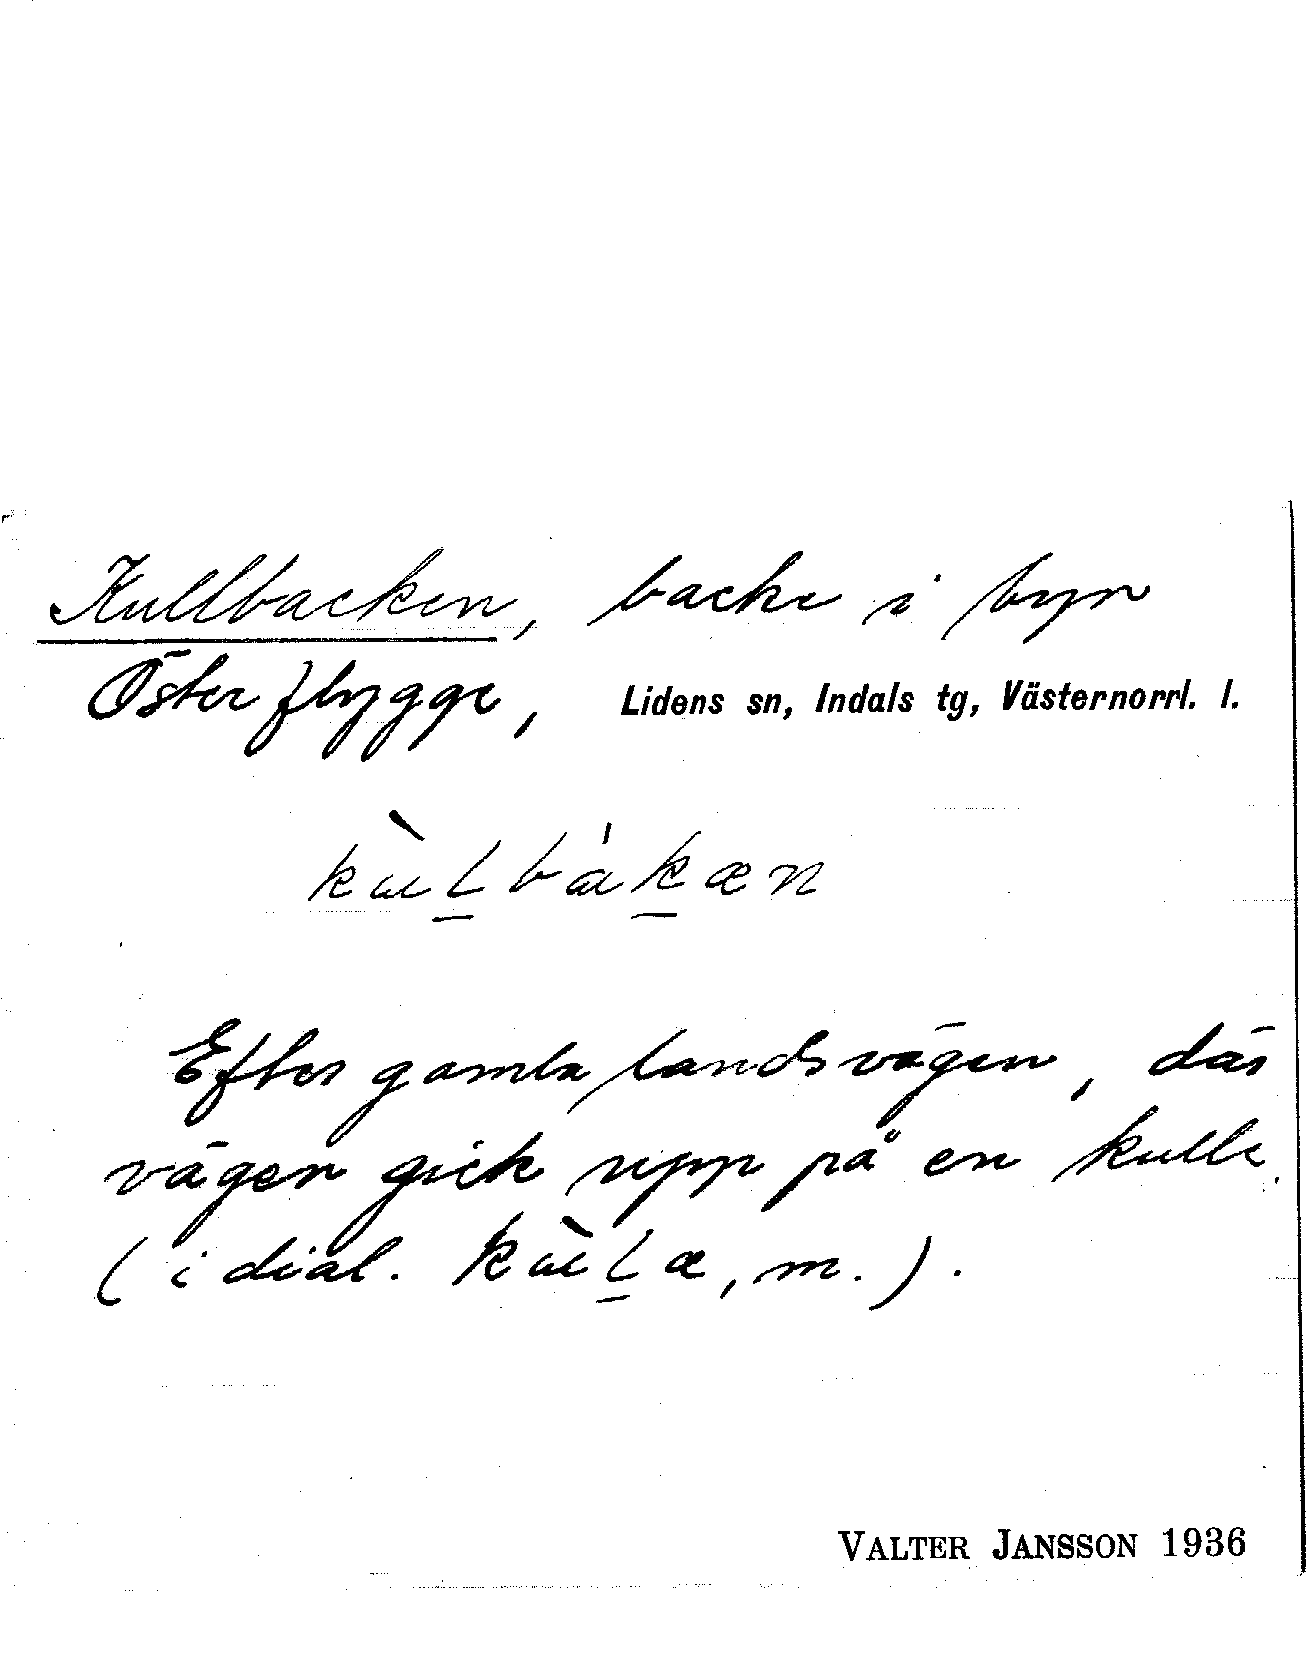 Kullbacken, backe i byn
Österflygge, Lidens sn, Indals tg, Västernorrl. l.
Efter gamla landsvägen, där
vägen gick upp på en kulle
(i dial. , m.).
VALTER JANSSON 1936